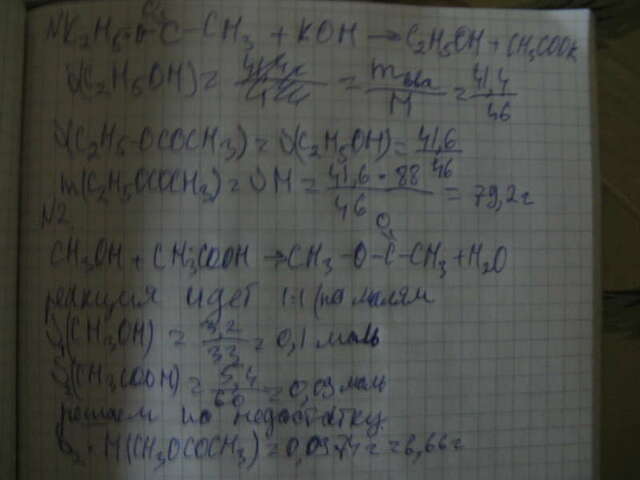 C2H5-O-C-CH3 + KOH → C2H5OH + CH3COOK
ν(C2H5OH) = = m / M = 41,4 / 46
ν(C2H5-OCOCH3) = ν(C2H5OH) = 41,6 / 46
m(C2H5OCOCH3) = ν M = 41,6 · 88 / 46 = 79,2 г
N2
O
CH3OH + CH3COOH → CH3-O-C-CH3 + H2O
реакция идет 1:1 (по молям
ν1(CH3OH) = 3,2 / 33 = 0,1 моль
ν2(CH3COOH) = 5,4 / 60 = 0,09 моль
решаем по недостатку
ν2 · M(CH3OCOCH3) = 0,09·74 = 6,66 г